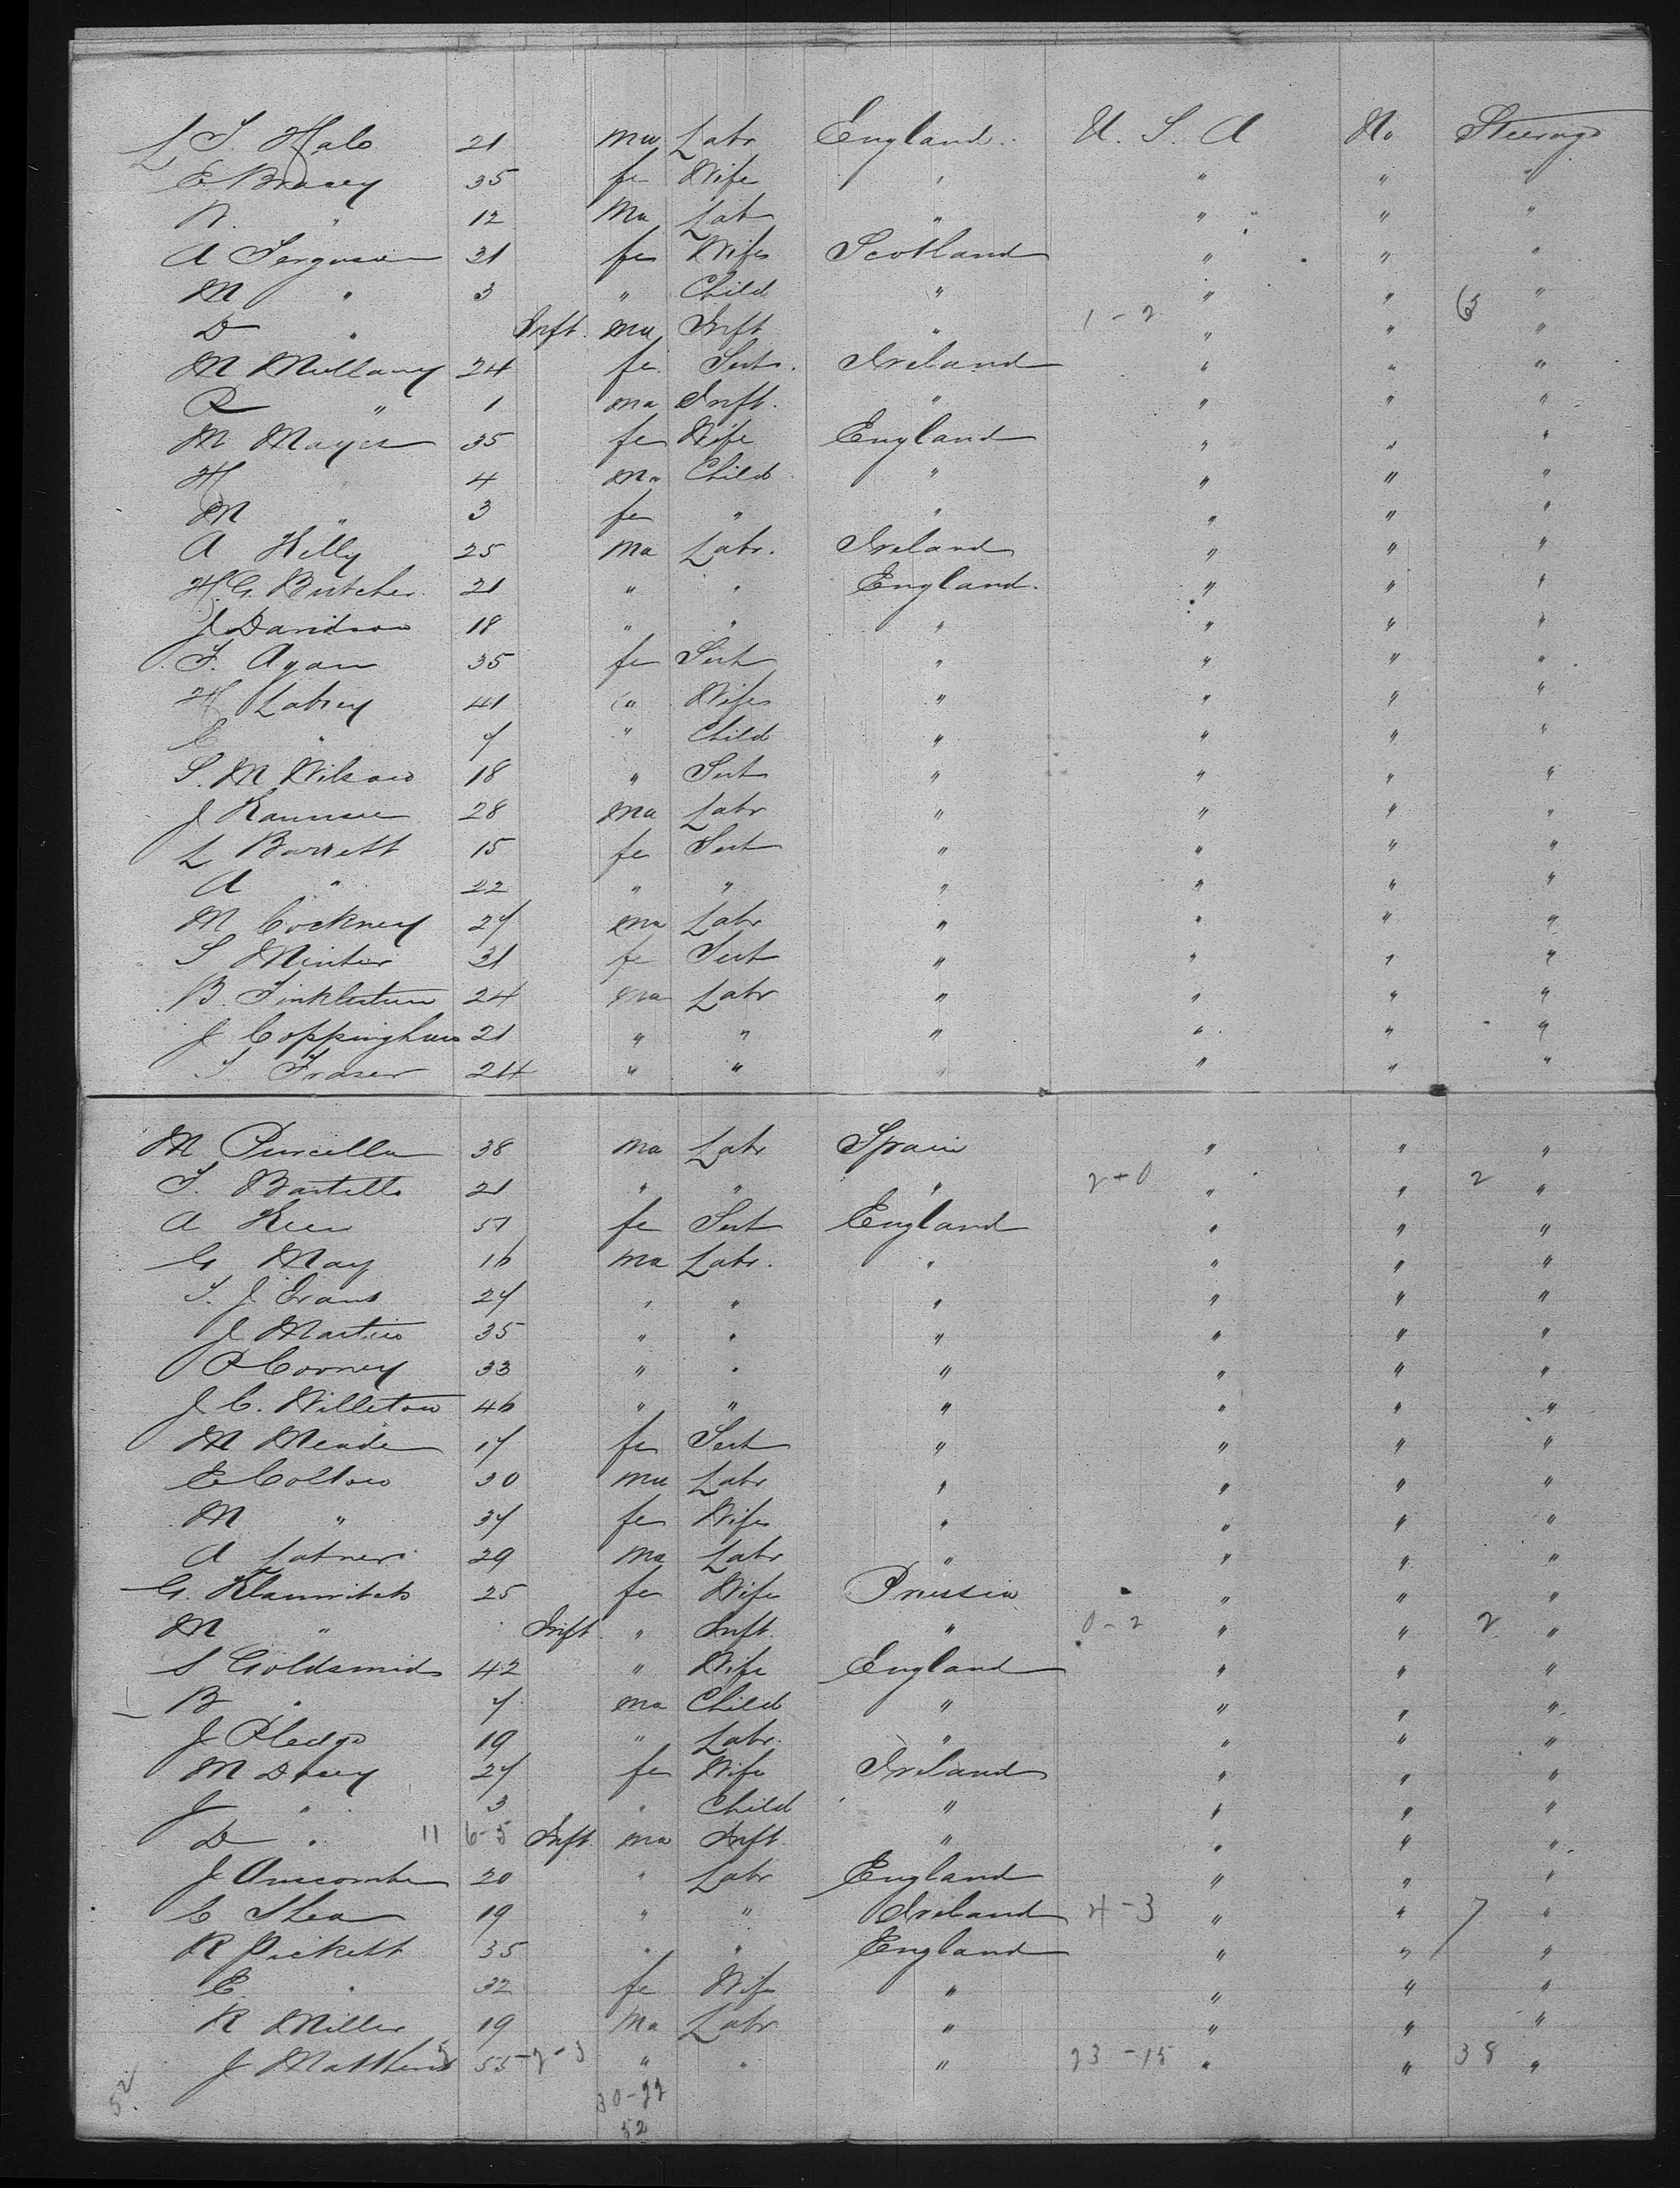 L T. Hale 21 ma Labr England. U. S. A No Steerage
E Bracey 35 fe Wife " " " "
R. " 12 Ma Labr " " " "
A Ferguson 31 fe Wife Scotland " " "
M " 3 " Child " " " "
D " Inft. ma Inft " 1-2 " " 3 "
M Mullany 24 fe Sert. Ireland " " "
R " 1 ma Inft. " " " "
M Mayer 35 fe Wife England " " "
H 4 Ma Child " " " "
M " 3 fe " " " " "
A Kelly 25 Ma Labr. Ireland " " "
H. G. Butcher 21 " " England. " " "
J Davidson 18 " " " " " "
F. Agan 35 fe Sert " " " "
H Labrey 41 " Wife " " " "
" 7 " Child " " " "
S. M Wilson 18 " Sert " " " "
J 28 ma Labr " " " "
L Barrett 15 fe Sert " " " "
A " 22 " " " " " "
M Cockney 27 ma Labr " " " "
S Minter 31 fe Sert " " " "
B. 24 ma Labr " " " "
J Coppingham 21 " " " " " "
T Fraser 24 " " " " "
M Purcella 38 Ma Labr Spain " " "
T. Bartells 21 " " " 2-0 " " 2 "
A Keen 51 fe Sert England " " "
G May 16 Ma Labr. " " " "
T. J Evans 27 " " " " " "
J Martin 35 " " " " " "
P Corney 33 " " " " " "
J. C. Willeton 46 " " " " " "
M Meade 17 fe Sert " " " "
E Colton 30 ma Labr " " " "
M " 37 fe Wife " " " "
A Latner 29 Ma Labr " " " "
G. 25 fe Wife Prussia " " "
M " Inft. " Inft. " 0-2 " " 2 "
S Goldsmid 42 " Wife England " " "
B " 7 ma Child " " " "
J Pledge 19 " Labr. " " " "
M Dacey 27 fe Wife Ireland " " "
J " 3 " Child " " " "
D " 11 6-5 Inft. ma Inft. " " " "
J Anscombe 20 " Labr England " " "
C Shea 19 " " Ireland 4-3 " " 7 "
R Pickett 35 " " England " " "
E. " 32 fe Wife " " " "
R Miller 19 Ma Labr " " " "
J Matthews 55 -2-3 " " " 23-15 " " 38 "
52 30-22
52